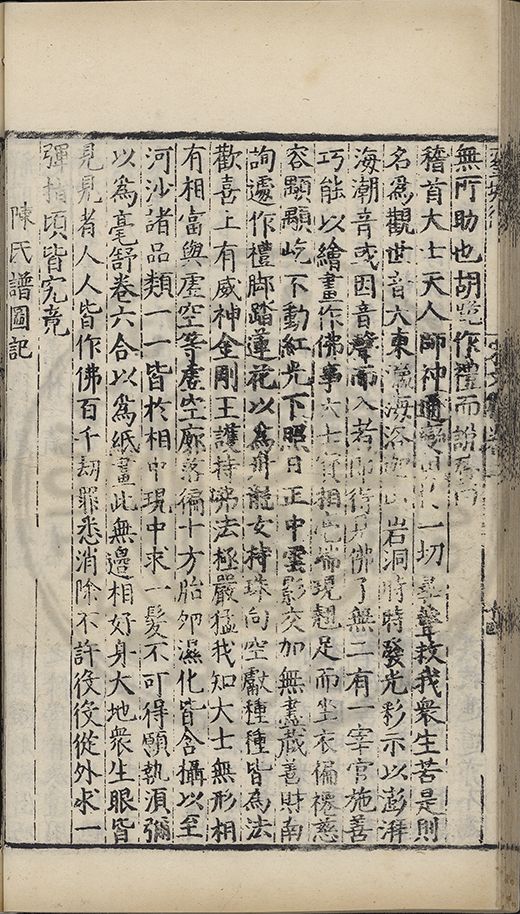 無所助也胡跪作禮而說偈曰
稽首大士天人師神通變一切尋聲救我衆生苦是則
名爲觀世音大東瀛海洛伽山岩洞時時發光彩示以澎湃
海潮音或因音聲而入者即得見佛了無二有一宰官施善
巧能以繪畫作佛事大士實相端現翹足而坐衣褊慈
容顯顯屹不動紅光下照日正中雲影交加無盡藏善財南
詢遽作禮脚踏蓮花以爲輿龍女持珠向空獻種種皆爲法
歡喜上有威神金剛王護持佛法極嚴猛我知大士無形相
有相當與虛空等虛空廓落徧十方胎卵濕化皆含攝以至
河沙諸品類一一皆於相中現中求一髮不可得願執須彌
以爲毫舒卷六合以爲紙畫此無邊相好身大地衆生眼皆
見見者人人皆作佛百千刧罪悉消除不許役役從外求一
彈指頃皆究竟
陳氏譜圖記